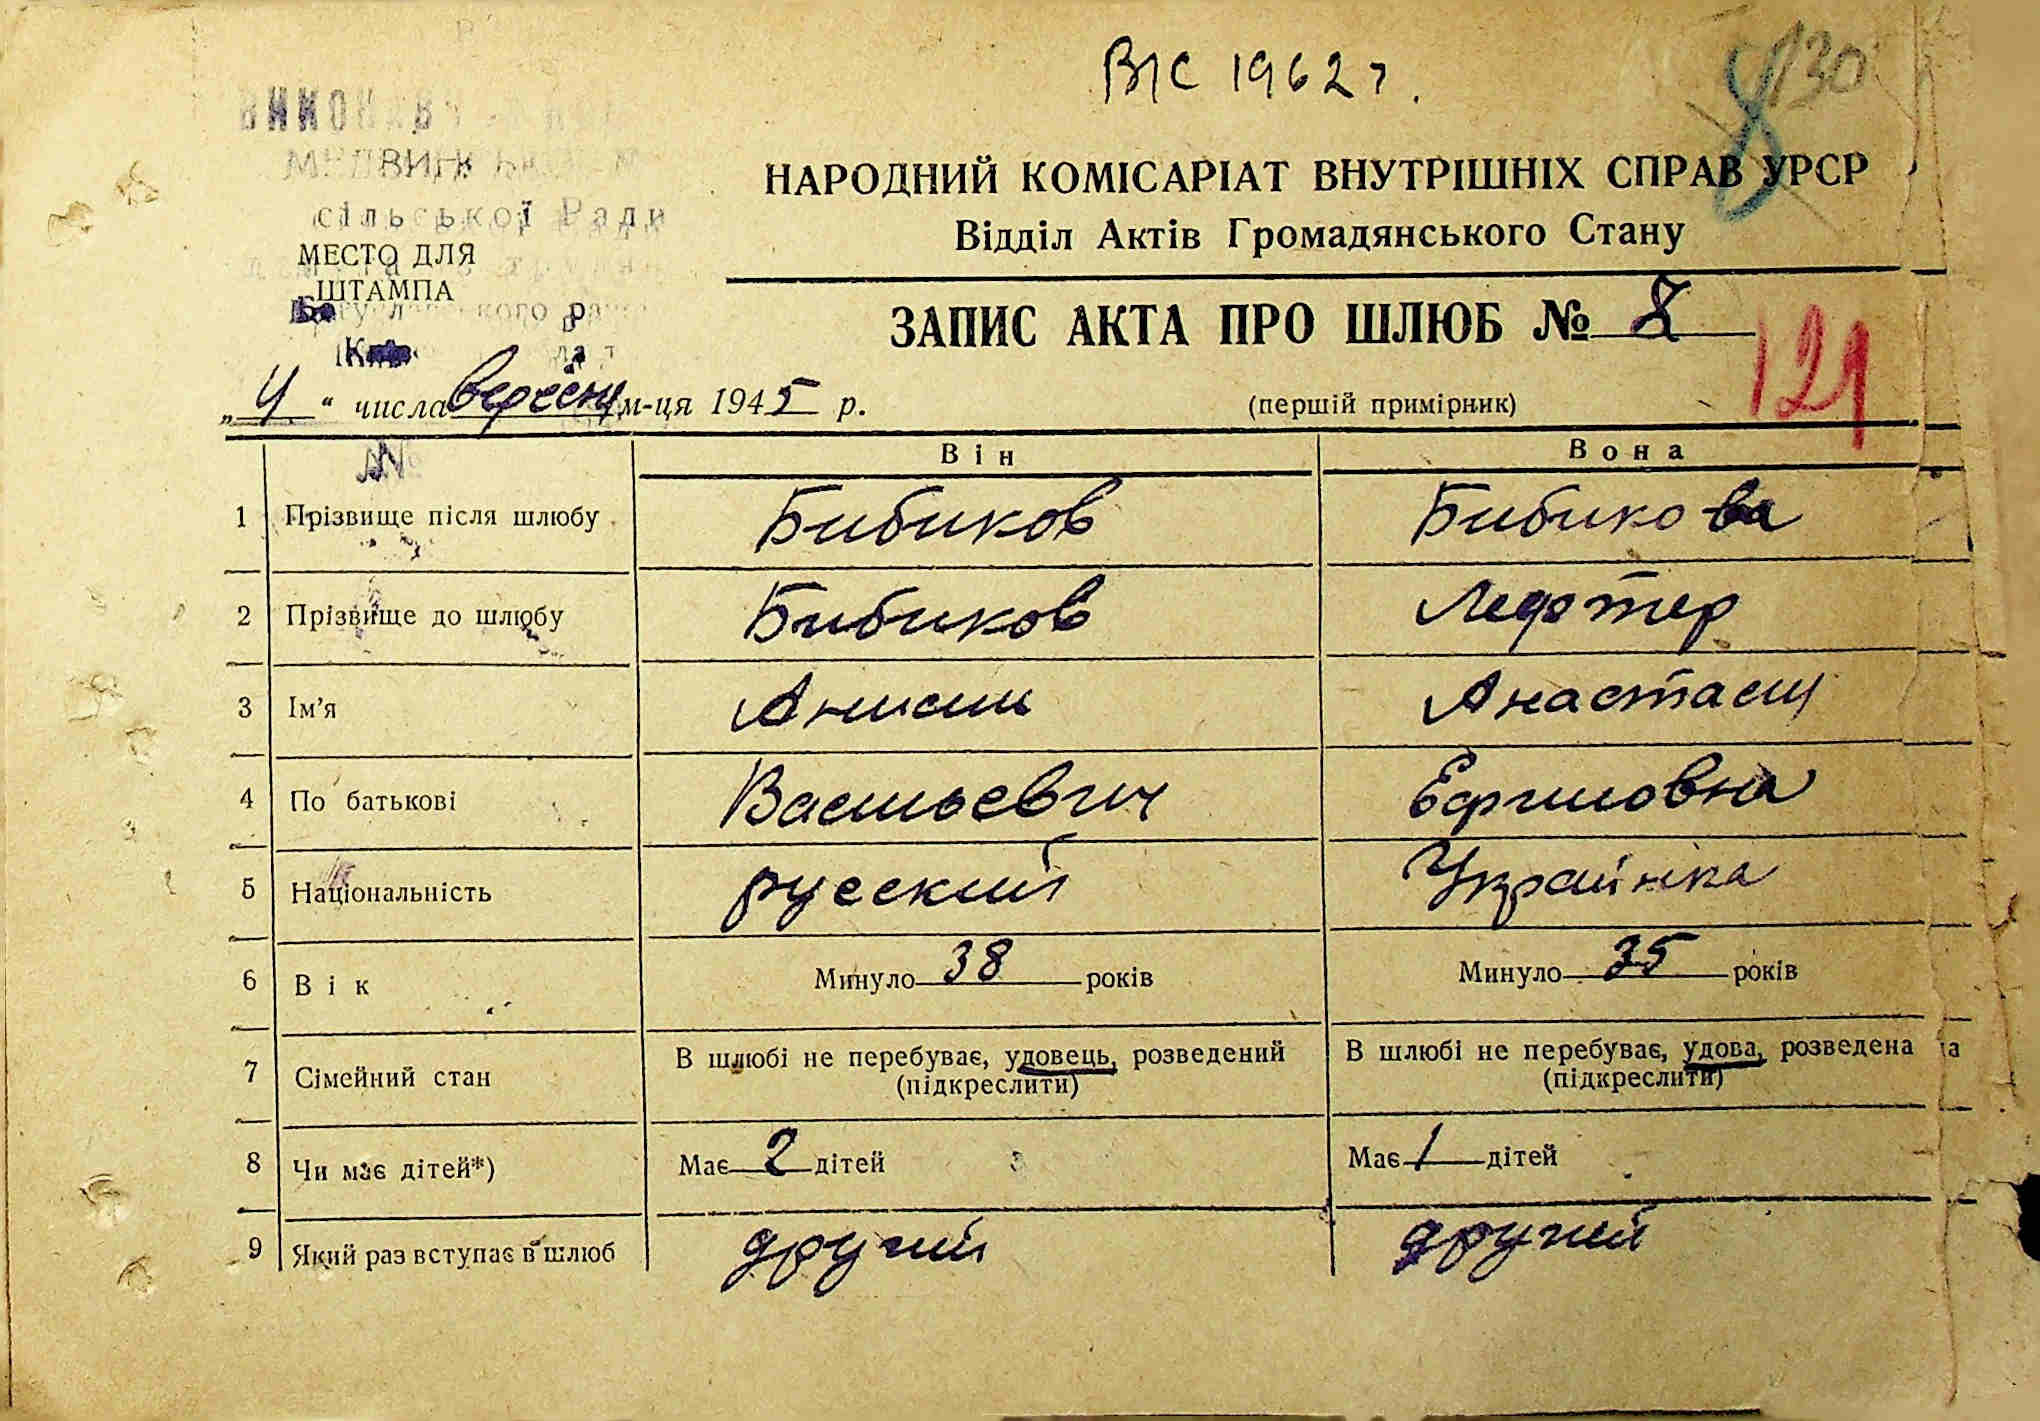 В/С 1962 г.
8 130
сільської Ради
МЕСТО ДЛЯ
ШТАМПА
НАРОДНИЙ КОМІСАРІАТ ВНУТРІШНІХ СПРАВ УРСР
Відділ Актів Громадянського Стану
ЗАПИС АКТА ПРО ШЛЮБ № 8
„ 4 “ числа вересня м-ця 1945 р.
(перший примірник)
121
Він Вона
1 Прізвище після шлюбу Бибиков Бибикова
2 Прізвище до шлюбу Бибиков Лефтер
3 Ім’я Анисим Анастасия
4 По батькові Васильевич Ефимовна
5 Національність русский Українка
6 Вік Минуло 38 років Минуло 35 років
7 Сімейний стан В шлюбі не перебуває, удовець, розведений В шлюбі не перебуває, удова, розведена
(підкреслити) (підкреслити)
8 Чи має дітей*) Має 2 дітей Має 1 дітей
9 Який раз вступає в шлюб другий другий